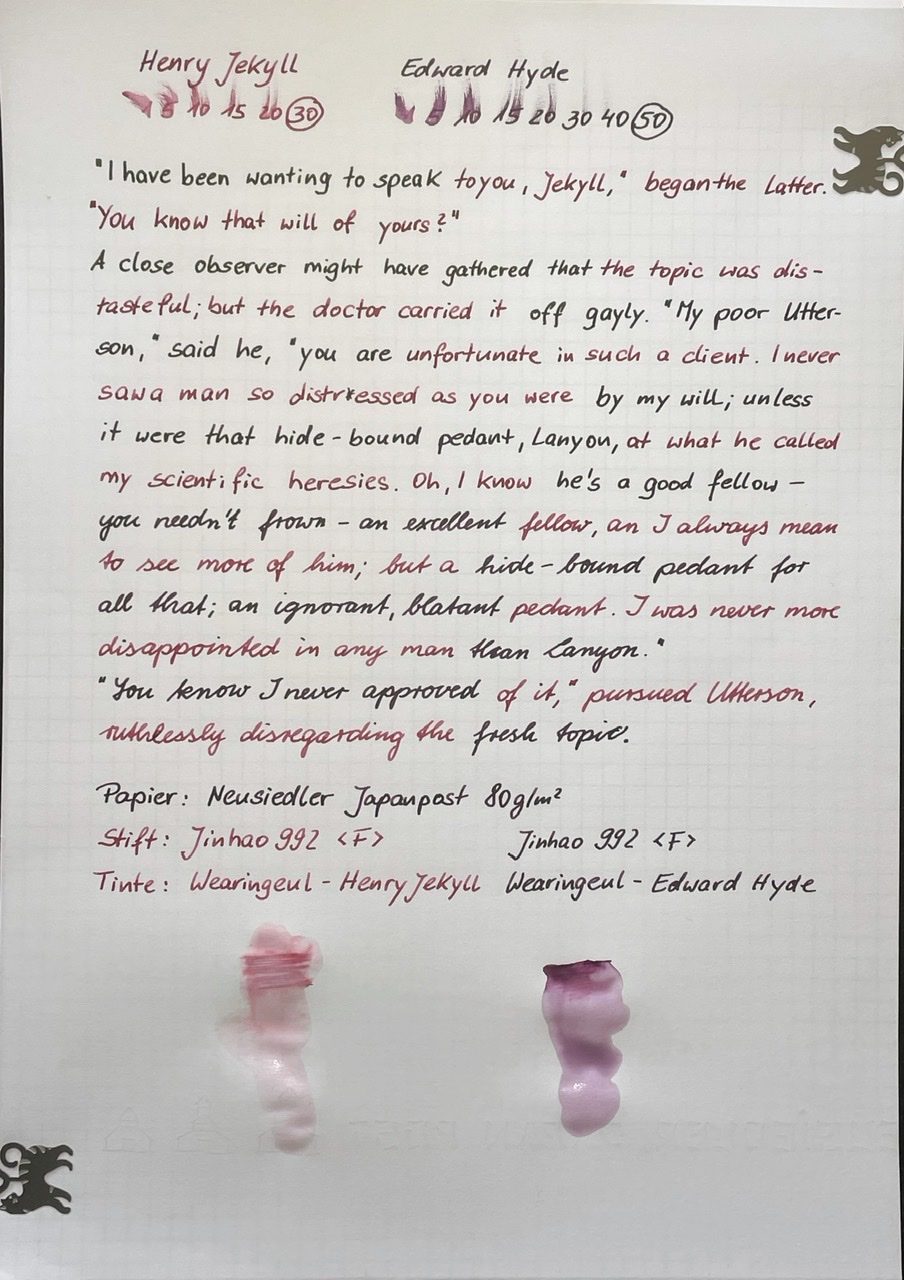 Henry Jekyll Edward Hyde
5 10 15 20 30 5 10 15 20 30 40 50
"I have been wanting to speak to you, Jekyll," began the latter.
"You know that will of yours?"
A close observer might have gathered that the topic was dis-
tasteful; but the doctor carried it off gayly. "My poor Utter-
son," said he, "you are unfortunate in such a client. I never
saw a man so distressed as you were by my will; unless
it were that hide-bound pedant, Lanyon, at what he called
my scientific heresies. Oh, I know he's a good fellow –
you needn't frown – an excellent fellow, an I always mean
to see more of him; but a hide-bound pedant for
all that; an ignorant, blatant pedant. I was never more
disappointed in any man than Lanyon."
"You know I never approved of it," pursued Utterson,
ruthlessly disregarding the fresh topic.
Papier: Neusiedler Japanpost 80g/m²
Stift: Jinhao 992 <F> Jinhao 992 <F>
Tinte: Wearingeul - Henry Jekyll Wearingeul - Edward Hyde